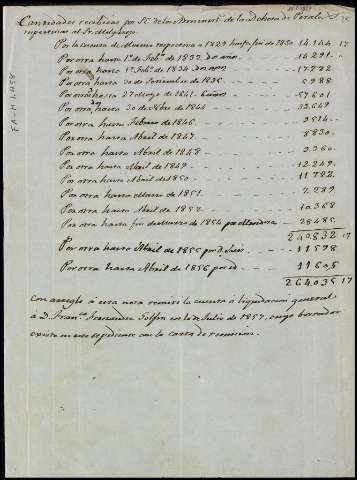 Cantidades recibidas por Sr. de los de la Dehesa de Perales
respectivas al Sr.
Por la cuenta de respectiva a 1829 hasta fin de 1830 14.144 17
Por otra hasta 1º Febº de 1832 14.291
Por otra hasta 1º Febº de 1834 17.792
Por otra hasta 30 de Noviembre de 1835 5.988
Por otra hasta 27 marzo de 1841 57601
Por otra hasta 30 de 1844
Por otra hasta Febrero de 1846 3514
Por otra hasta Abril de 1847 8830
Por otra hasta Abril de 1848 3.360
Por otra hasta Abril de 1849 12.249
Por otra hasta Abril de 1850 11.722
Por otra hasta Marzo de 1851 7.289
Por otra hasta Abril de 1852 10.368
Por otra hasta fin de Marzo de 1854 por 28485
240832 17
Por otra hasta Abril de 1855 por 11598
Por otra hasta Abril de 1856 por id 11605
264035 17
Con arreglo á esta nota remití la cuenta ó liquidacion general
á D. Franco Fernandez Golfin en 20 de Julio de 1857, cuyo borrador
existe en este espediente con la carta de remision.